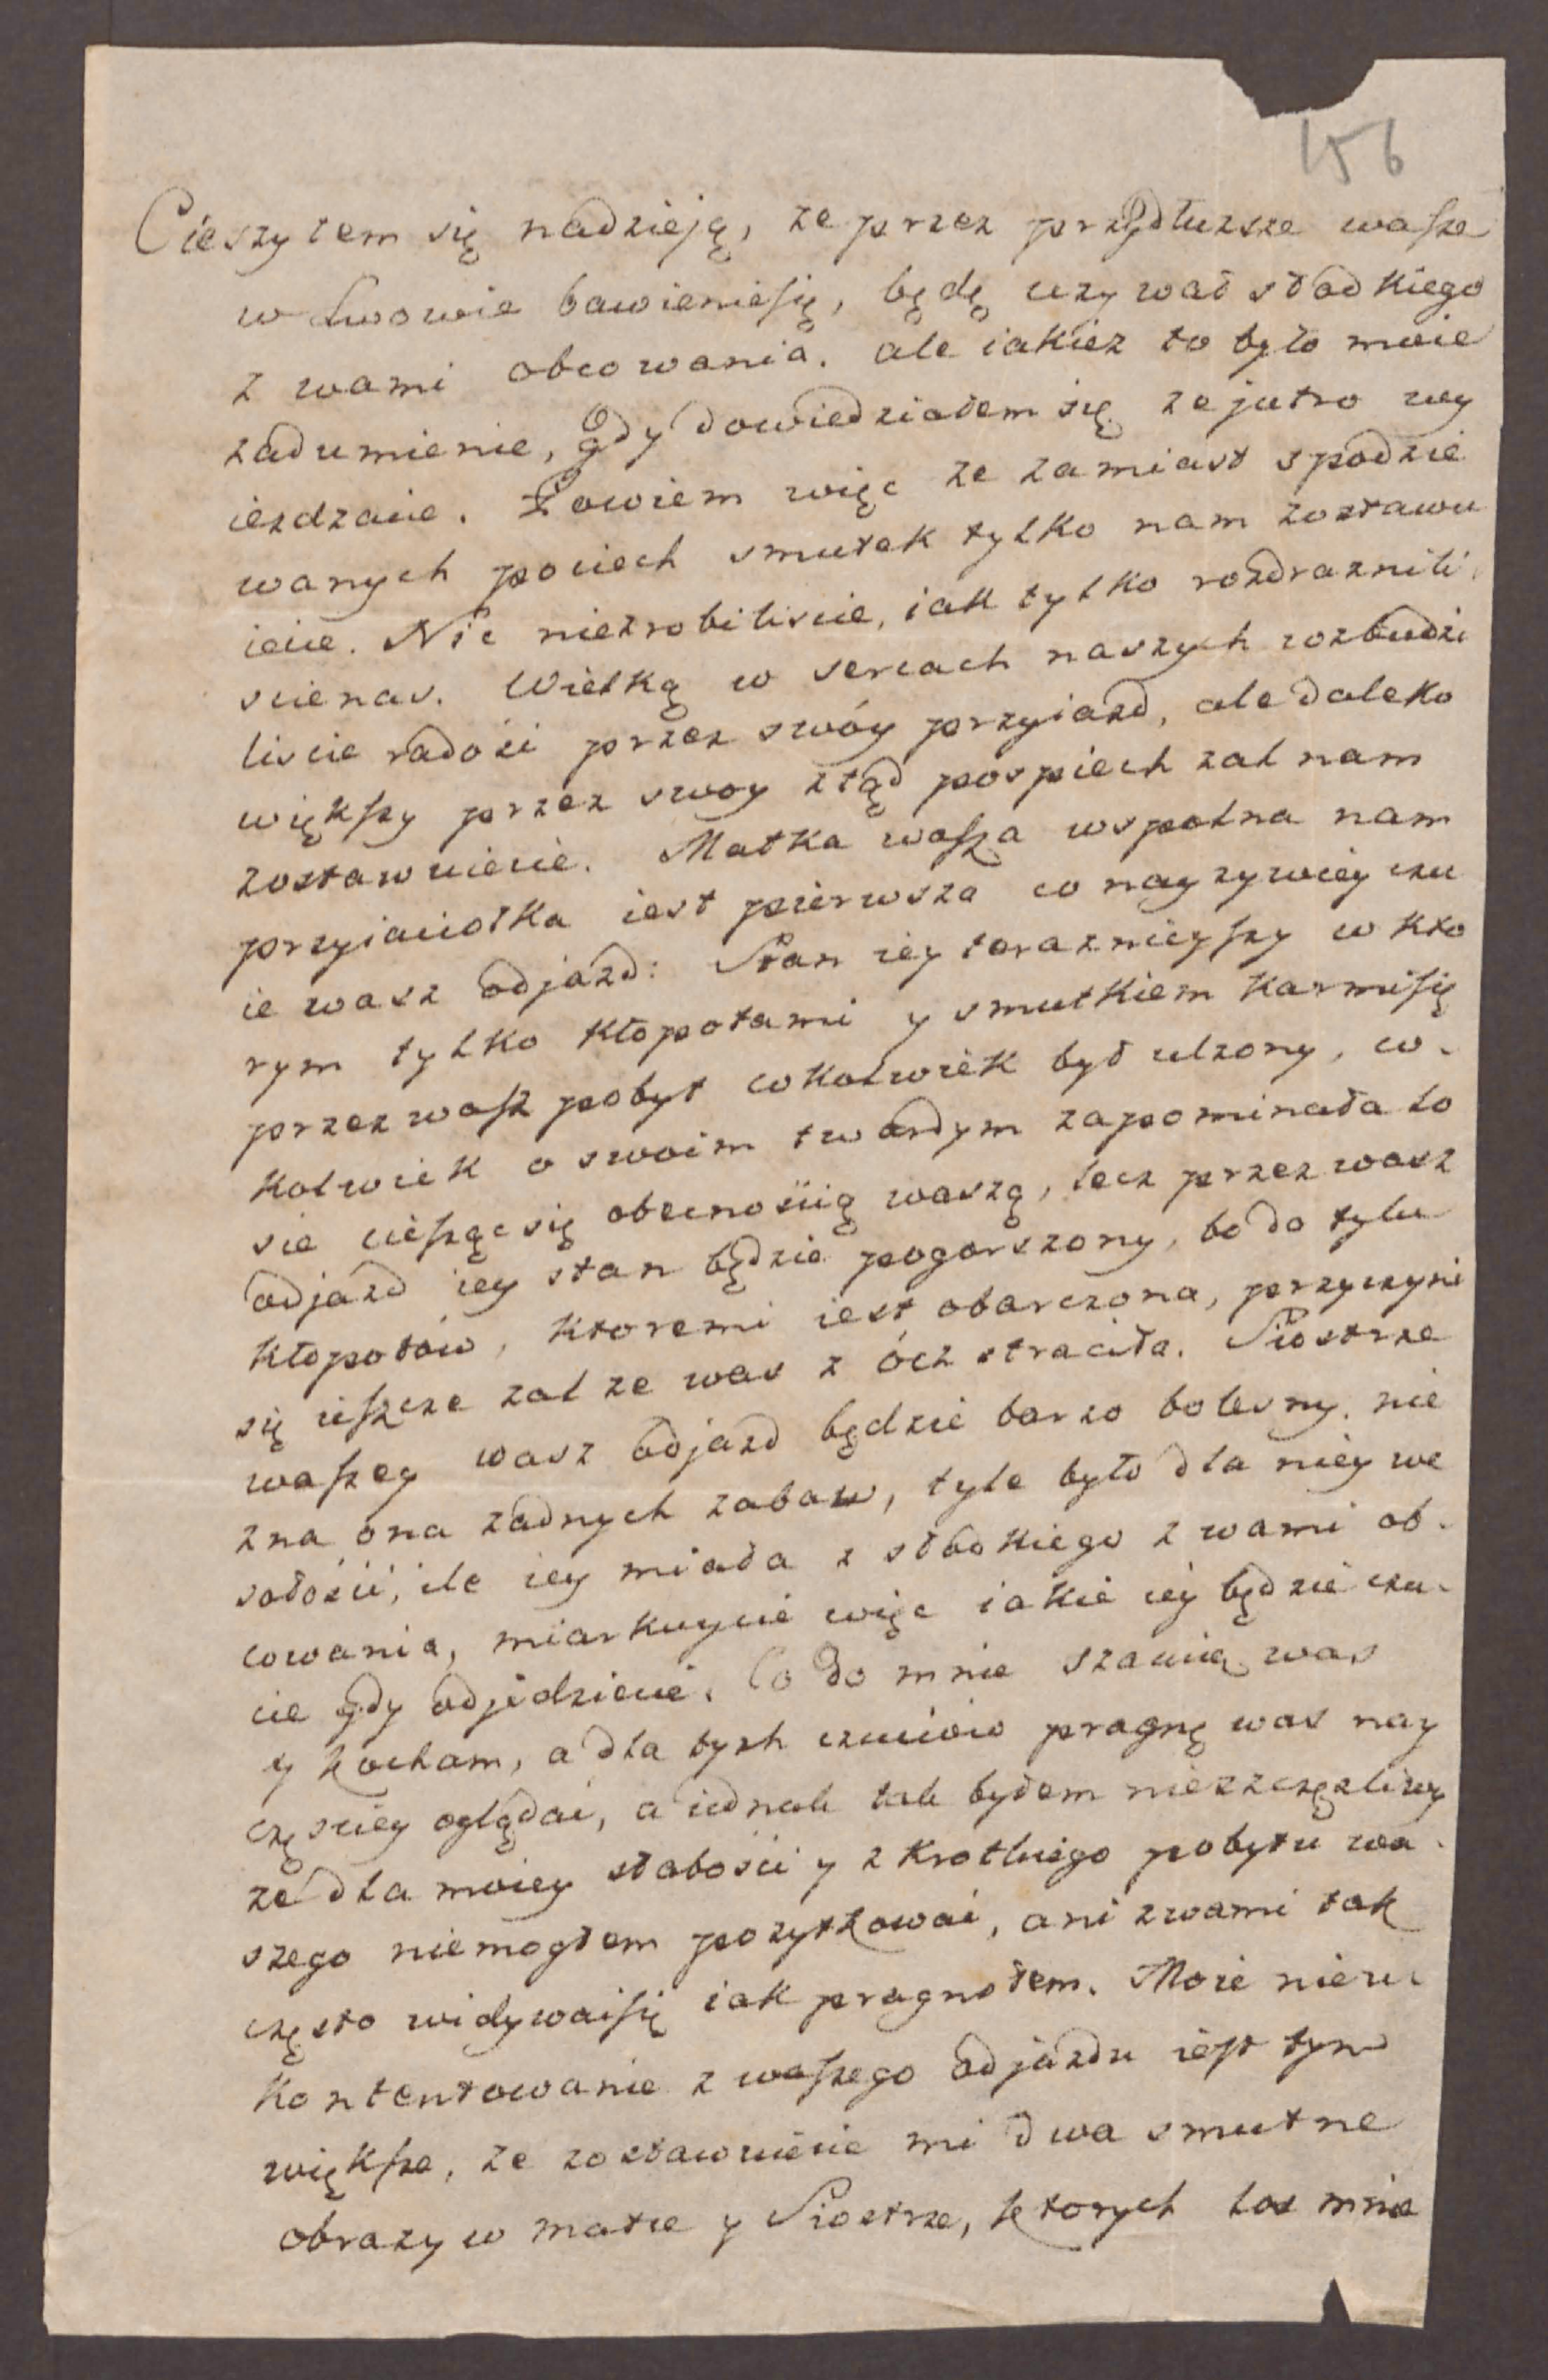 156
Cieszyłem się nadzieją, ze przez przydłuzsze wasze
w Lwowie bawieniesię, będę uzywał słodkiego
z wami obcowania. ale iakiez to było moie
zadumienie, gdy dowiedziałem się ze jutro wy
iezdzacie. Powiem więc ze zamiast spodzie
wanych pociech smutek tylko nam zostawu
iecie. Nic niezrobiliscie, iak tylko rozdraznili
scienas. Wielką w sercach naszych wzbudzi
liscie radość przez swóy przyiazd, ale daleko
większy przez swoy ztąd pospiech zal nam
zostawuiecie. Matka wasza wspolna nam
przyiaciołka iest pierwsza co nayzywiey czu
ie wasz odjazd: Stan iey teraznieyszy w kto
rym tylko kłopotami y smutkiem karmisię
przez wasz pobyt cokolwiek był ulzony, co-
kolwiek o swoim twardym zapominała lo
sie ciesząc się obecnością waszą, lecz przez wasz
odjazd iey stan będzie pogorszony, bo do tylu
kłopotów, ktoremi iest obarczona, przyczyni
się ieszcze zal ze was z ócz straciła. Siostrze
waszey wasz odjazd będzie barzo bolesny. nie
zna ona zadnych zabaw, tyle było dla niey we
sołości, ile iey miała z słodkiego z wami ob-
cowania, miarkuycie więc iakie iey będzie czu-
cie gdy odjedziecie. Co do mnie szacuię was
y kocham, a dla tych czuciów pragnę was nay
częsciey oglądać, a iednak tak byłem nieszczęzliwy
ze dla moiey słabości y z krotkiego pobytu wa-
szego niemogłem pozytkować, ani zwami tak
często widywaćsię iak pragnołem. Moie nieu-
kontentowanie z waszego odjazdu iest tym
większe, ze zostawuiecie mi dwa smutne
obrazy w matce y Siostrze, ktorych los mnie